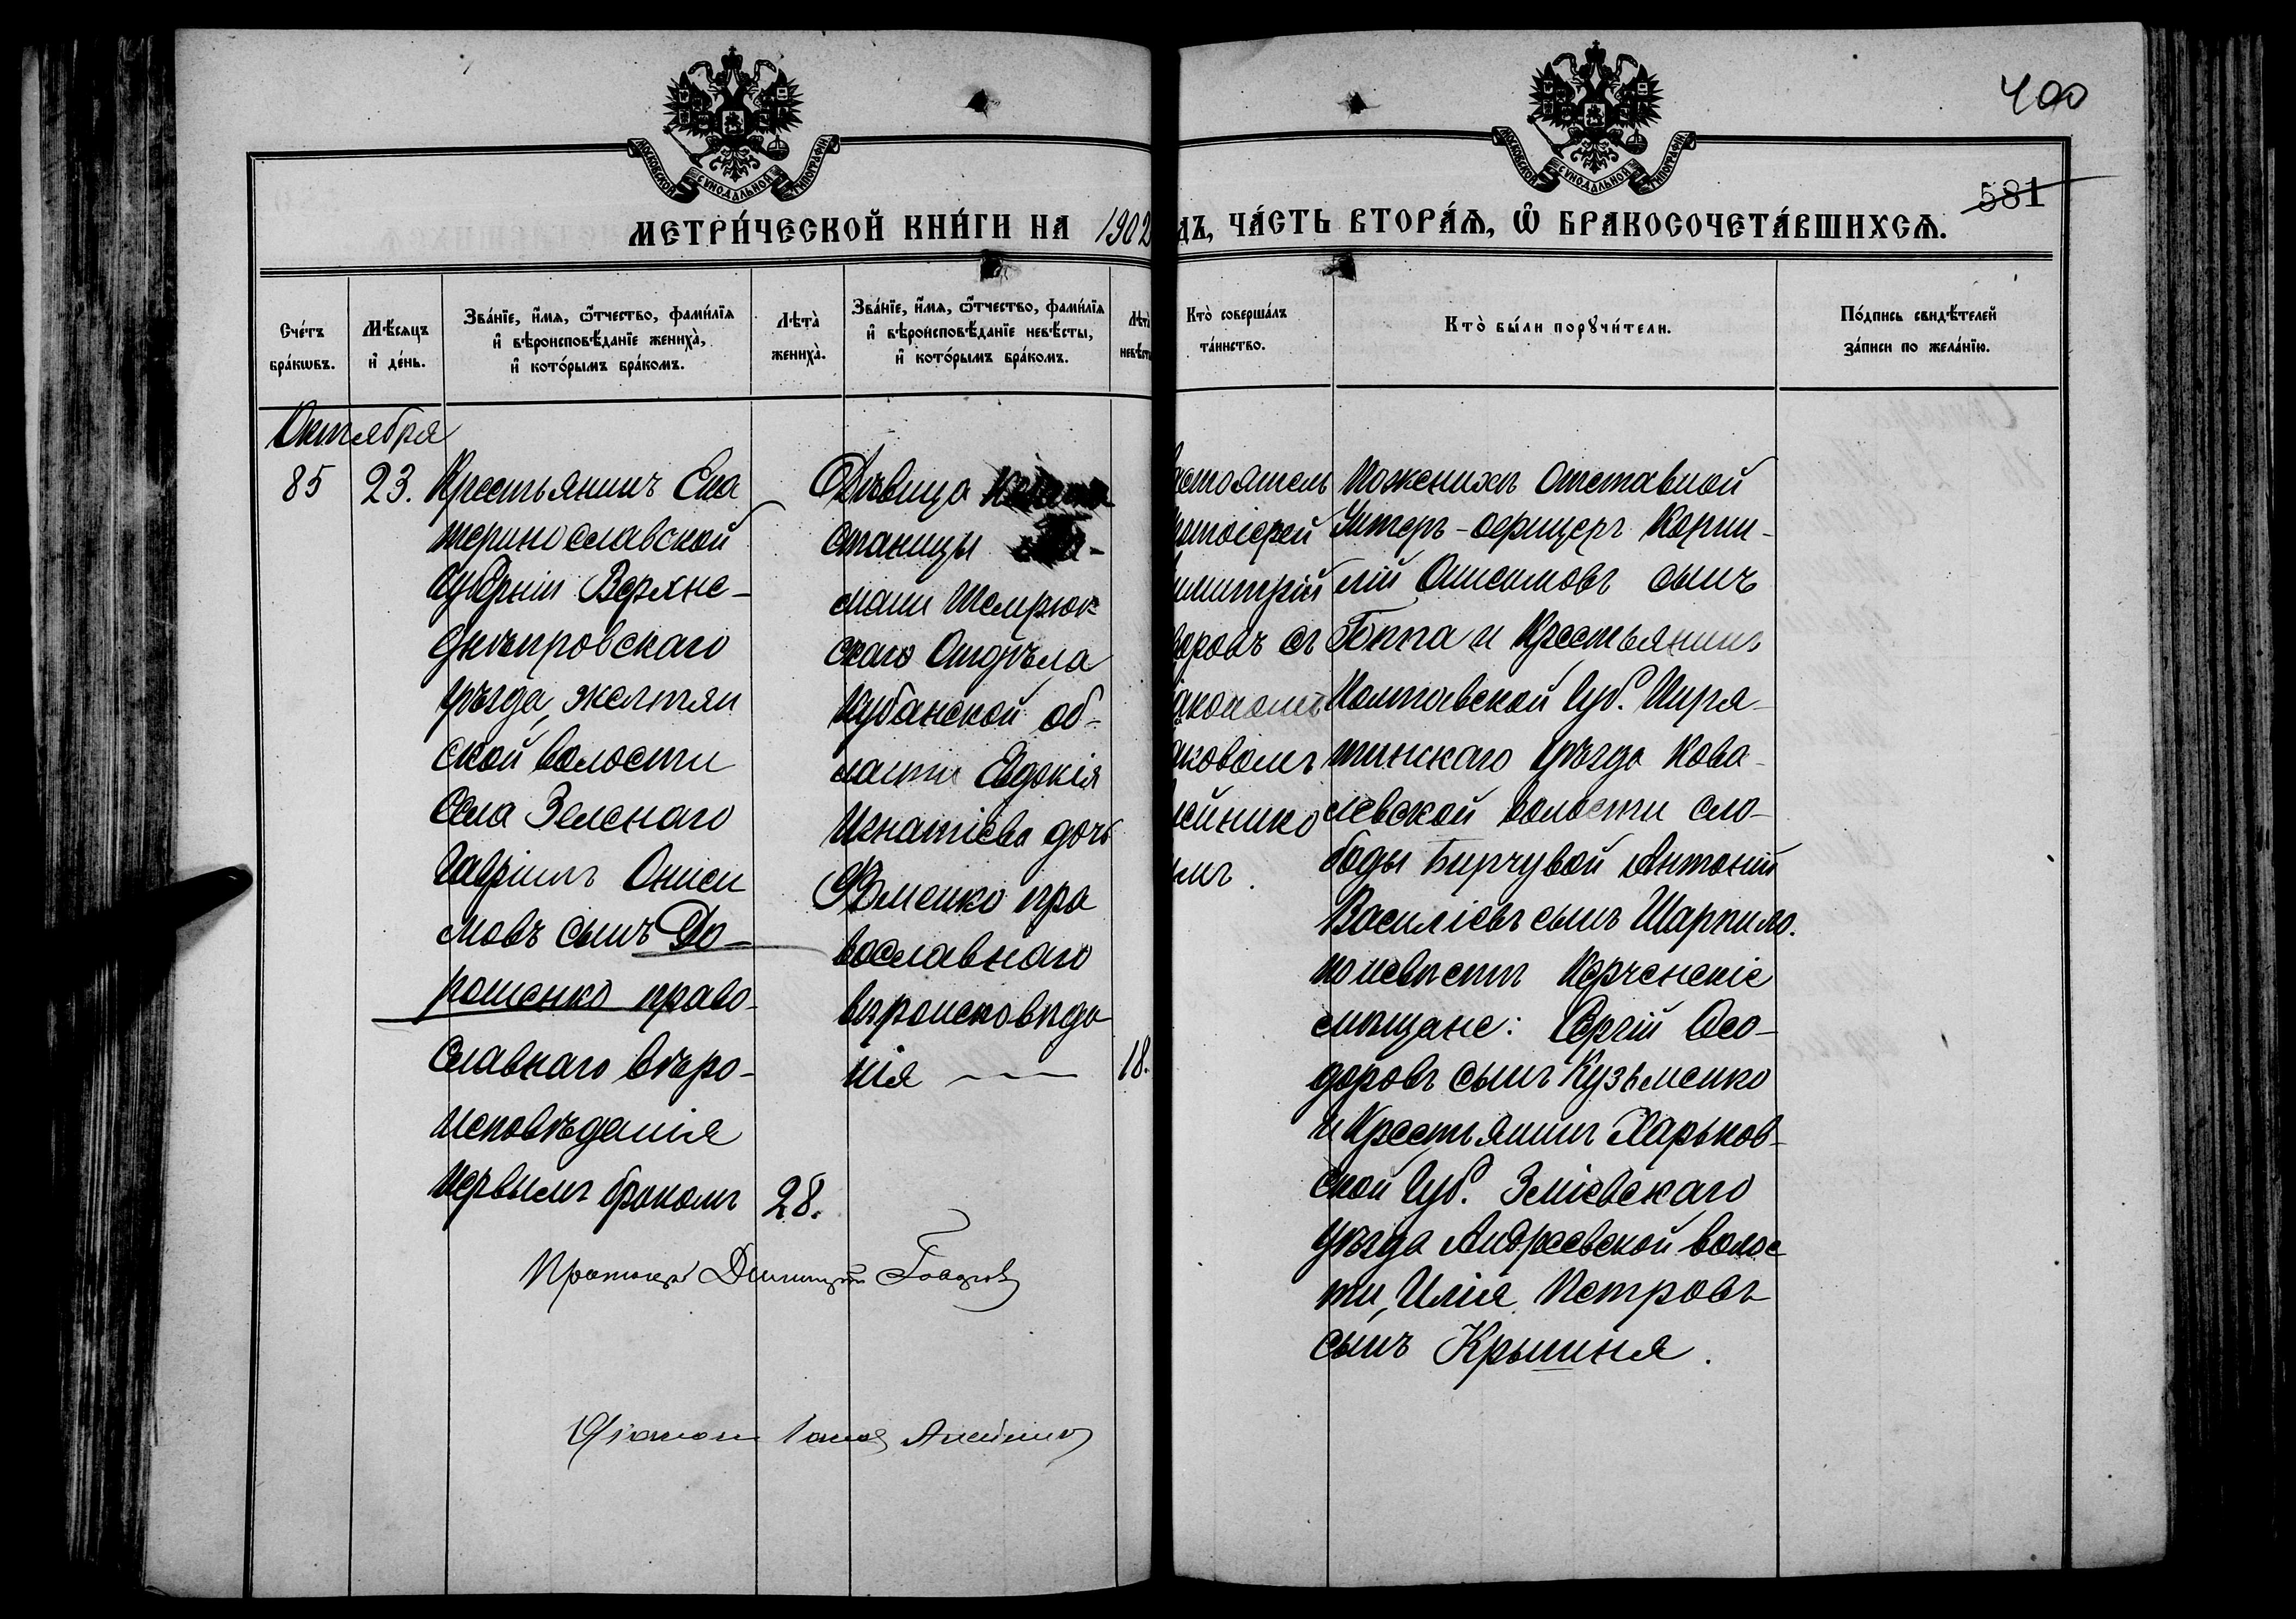 400
581
МОСКОВСКОЙ СѴНОДАЛЬНОЙ ТИПОГРАФІИ
МОСКОВСКОЙ СѴНОДАЛЬНОЙ ТИПОГРАФІИ
МЕТРИ́ЧЕСКОЙ КНИ́ГИ НА 1902
ДЪ, ЧА́СТЬ ВТОРА́Ѧ, Ѿ БРАКОСОЧЕТА́ВШИХСѦ.
Сче́тъ бра́кѡвъ.
Мѣ́сяцъ и҆ де́нь.
Зва́нїе, и҆́мѧ, ѻ҆́тчество, фами́лїѧ
и҆ вѣроисповѣ́данїе жениха̀,
и҆ кото́рымъ бра́комъ.
Лѣта̀ жениха̀.
Зва́нїе, и҆́мѧ, ѻ҆́тчество, фами́лїѧ
и҆ вѣроисповѣ́данїе невѣ́сты,
и҆ кото́рымъ бра́комъ.
Лѣта̀
невѣст
Кто̀ соверша́лъ
та́инство.
Кто̀ бы́ли порꙋчи́тели.
По́дпись свидѣ́телей
за́писи по жела́нїю.
Октября
85
23.
Крестьянинъ Ека
теринославской
губерніи Верхне-
днѣпровскаго
уѣзда, желтян
ской волости
Села Зеленаго
Гавріилъ Ониси
мовъ сынъ До-
рошенко право-
славнаго вѣро-
исповѣданія
первымъ бракомъ
28.
Дѣвица
станицы
мани Темрюк
скаго Отдѣла
Кубанской об-
ласти Евдокія
Игнатіева дочь
Фоменко пра
вославнаго
вѣроисповѣда
нія
18.
астоятель
ротоіерей
имитрій
воровъ съ
іакономъ
аковомъ
лейнико
ымъ.
По женихѣ Отставной
Унтеръ-офицеръ Корни-
лій Онисимовъ сынъ
Гоппа и Крестьянинъ
Полтавской губ. Пиря-
тинскаго уѣзда Кова-
левской волости сло-
боды Бирчувой Антоній
Василіевъ сынъ Шарпило.
по невѣстѣ Керченскіе
мѣщане: Сергій Ѳео-
доровъ сынъ Кузьменко
и Крестьянинъ Харьков-
ской губ. Зміевскаго
уѣзда Андреевской волос
ти, Илія Петровъ
сынъ Крышня.
Протоіерей Димитрій
Діаконъ Іаковъ Алейников